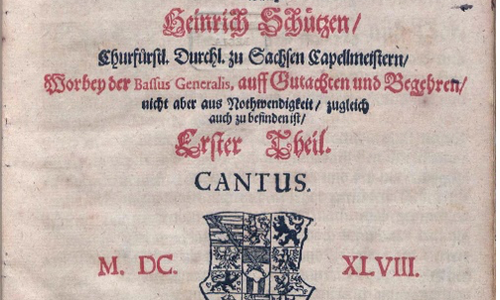 Heinrich Schützen/
Churfürstl. Durchl. zu Sachsen Capellmeistern/
Worbey der Bassus Generalis, auff Gutachten und Begehren/
nicht aber aus Nothwendigkeit/ zugleich
auch zu befinden ist/
Erster Theil.
CANTUS.
M. DC. XLVIII.